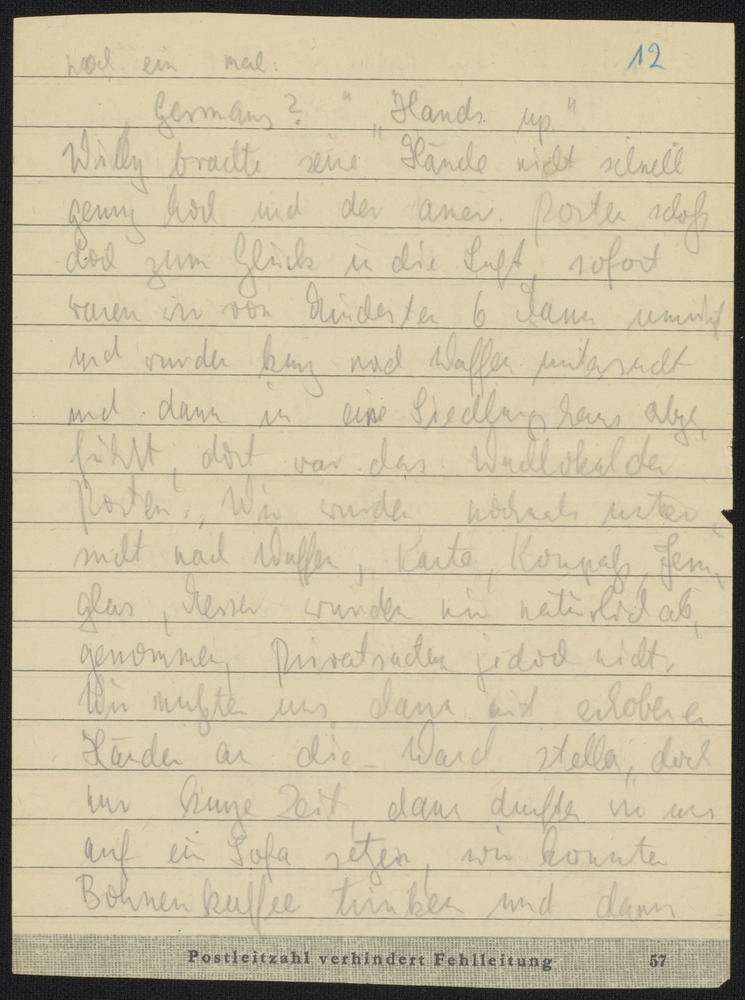 noch ein mal: 12
"Germans?" "Hands up."
Willy brachte seine Hände nicht schnell
genug hoch und der amer. Posten schoß
doch zum Glück in die Luft, sofort
waren wir von mindesten 6 Mann umringt
und wurden kurz nach Waffen untersucht
und dann in eine Siedlungshaus abge,
führt, dort war das Wachlokal der
Posten. Wir wurden nochmals unter,
sucht nach Waffen, Karte, Kompaß, Fern,
glas, Messer wurden mir natürlich ab,
genommen, Privatsachen jedoch nicht.
Wir mußten uns dann mit erhobenen
Händen an die Wand stellen, doch
nur kurze Zeit, dann durften wir uns
auf ein Sofa setzen, wir konnten
Bohnenkaffee trinken und dann
Postleitzahl verhindert Fehlleitung 57